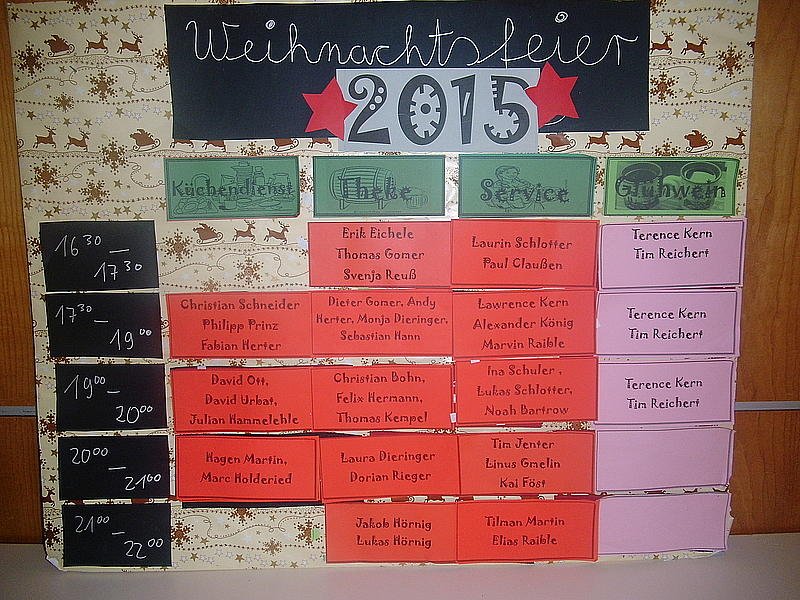 Weihnachtsfeier
2015
Küchendienst Theke Service Glühwein
16³⁰ –
17³⁰
Erik Eichele
Thomas Gomer
Svenja Reuß
Laurin Schlotter
Paul Claußen
Terence Kern
Tim Reichert
17³⁰ –
19⁰⁰
Christian Schneider
Philipp Prinz
Fabian Herter
Dieter Gomer, Andy
Herter, Monja Dieringer,
Sebastian Hann
Lawrence Kern
Alexander König
Marvin Raible
Terence Kern
Tim Reichert
19⁰⁰ –
20⁰⁰
David Ott,
David Urbat,
Julian Hammelehle
Christian Bohn,
Felix Hermann,
Thomas Kempel
Ina Schuler ,
Lukas Schlotter,
Noah Bartrow
Terence Kern
Tim Reichert
20⁰⁰
– 21⁰⁰
Hagen Martin,
Marc Holderied
Laura Dieringer
Dorian Rieger
Tim Jenter
Linus Gmelin
Kai Föst
21⁰⁰ –
22⁰⁰
Jakob Hörnig
Lukas Hörnig
Tilman Martin
Elias Raible